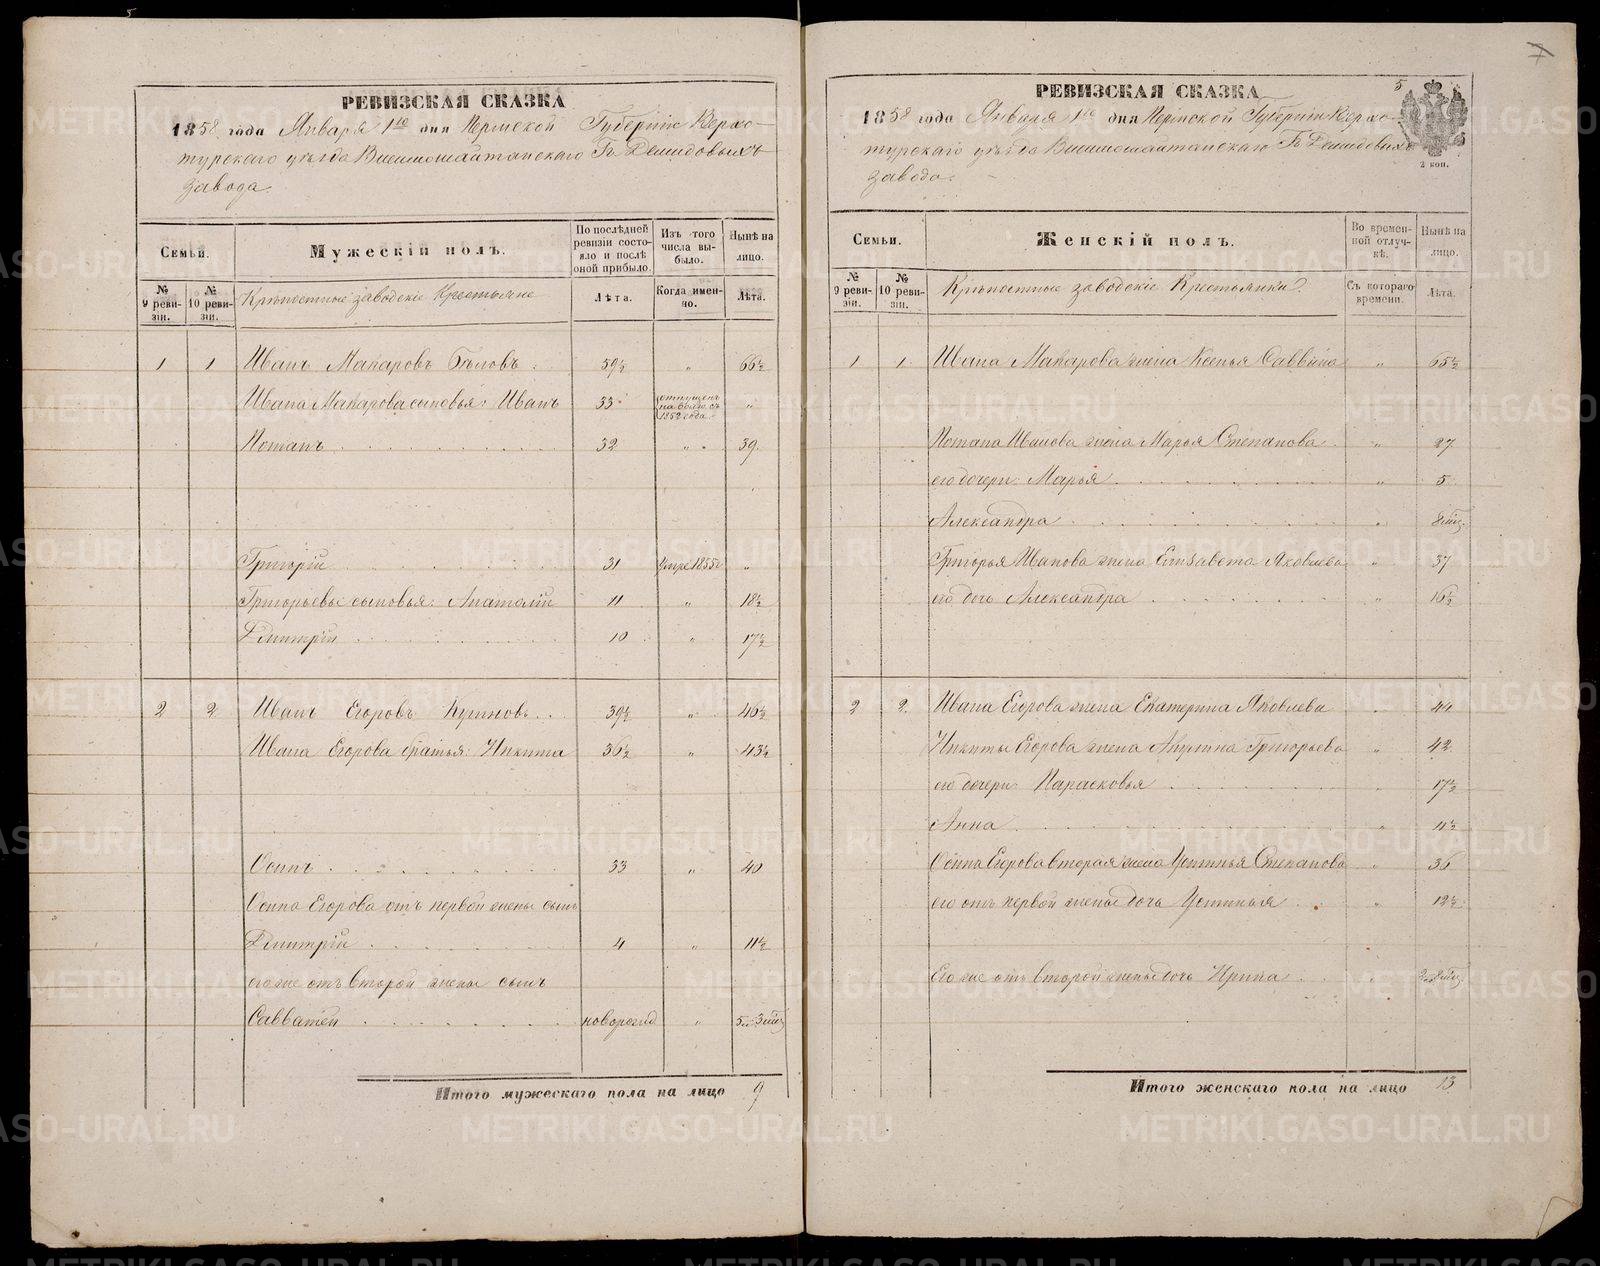 5
РЕВИЗСКАЯ СКАЗКА
1858 года Января 1го дня Пермской Губерніи Верхо-
турскаго уѣзда Висимошайтанскаго Гъ. Демидовыхъ
завода.
Семьи.
№ 9 ревизіи.
№ 10 ревизіи.
Мужескій полъ.
Крѣпостные заводскіе Крестьяне
По послѣдней ревизіи состояло и послѣ оной прибыло.
Лѣта.
Изъ того числа выбыло.
Когда именно.
Нынѣ на лицо.
Лѣта.
1 1 Иванъ Макаровъ Бѣловъ 59½ " 66½
Ивана Макарова сыновья: Иванъ 33 отпущенъ на волю съ 1852 года "
Потапъ 32 " 39
Григорій 31 умре 1855 "
Григорьевы сыновья: Анатолій 11 " 18½
Дмитрій 10 " 17½
2 2 Иванъ Егоровъ 39½ " 46½
Ивана Егорова братья: Никита 36½ " 43½
Осипъ 33 " 40
Осипа Егорова отъ первой жены сынъ
Дмитрій 4 " 11½
его же отъ второй жены сынъ
Савватей новорожд " 5.. 3 мѣс
Итого мужескаго пола на лицо 9
7
5
РЕВИЗСКАЯ СКАЗКА
2 коп.
1858 года Января 1го дня Пермской Губерніи Верхо-
турскаго уѣзда Висимошайтанскаго Гъ. Демидовыхъ
завода.
Семьи.
№ 9 ревизіи.
№ 10 ревизіи.
Женскій полъ.
Крѣпостные заводскіе Крестьянки
Во временной отлучкѣ.
Съ котораго времени.
Нынѣ на лицо.
Лѣта.
1 1 Ивана Макарова жена Ксенья Саввина " 65½
Потапа Иванова жена Марья Степанова " 27
его дочери: Марья " 5
Александра " 8 мѣс.
Григорья Иванова жена Елизавета Яковлева " 37
его дочь Александра " 16½
2 2 Ивана Егорова жена Екатерина Яковлева " 44
Никиты Егорова жена Акулина Григорьева " 42
его дочери: Парасковья " 17½
Анна " 11½
Осипа Егорова вторая жена Устинья Степанова " 36
его отъ первой жены дочь Устинья " 12½
Его же отъ второй жены дочь Ирина " 2.. 8 мѣс
Итого женскаго пола на лицо 13
METRIKI.GASO-URAL.RU